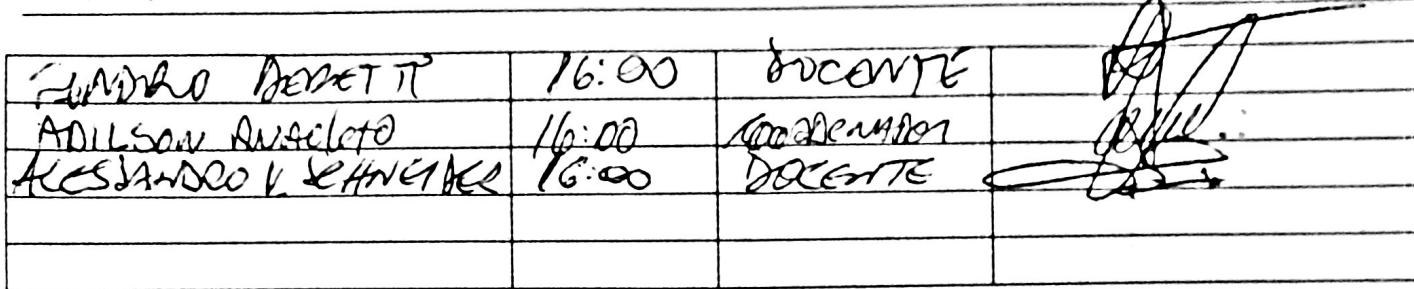 16:00 DOCENTE
ADILSON ANACLETO 16:00 COORDENADOR
ALESSANDRO V. SCHNEIDER 16:00 DOCENTE